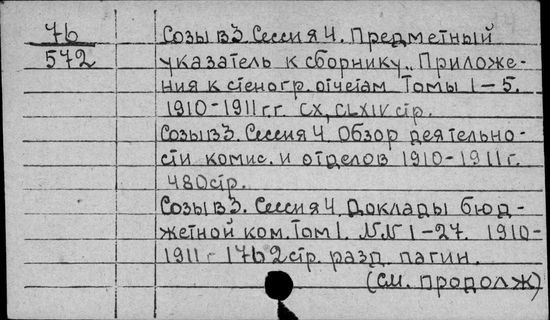 76
572
Созыв 3. Сессия 4. Предметный
указатель к сборнику „Приложе-
ния к стеногр. отчетам Томы 1-5.
1910-1911 г.г. CX, CLXIV стр.
Созыв 3. Сессия 4. Обзор деятельно-
сти комис. и отделов 1910-1911 г.
480 стр.
Созыв 3. Сессия 4. Доклады бюд-
жетной ком. Том 1. NN 1-27. 1910-
1911 г 1762 стр. разд. пагин.
(см. продолж)